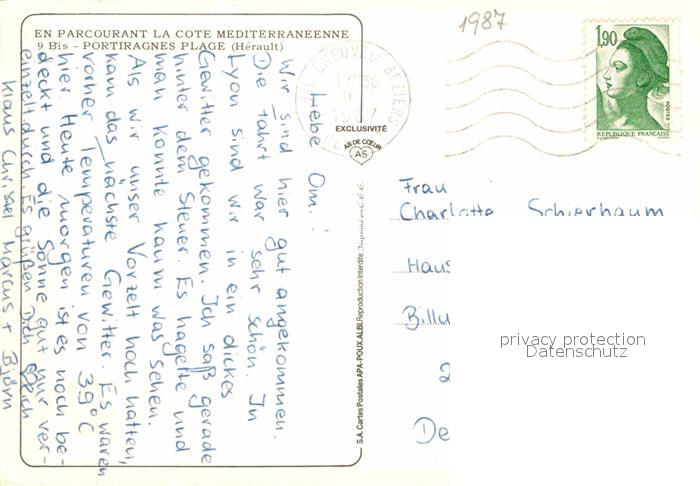 EN PARCOURANT LA COTE MEDITERRANEENNE
9 Bis - PORTIRAGNES PLAGE (Hérault)
Liebe Om.!
Wir sind hier gut angekommen.
Die Fahrt war sehr schön. In
Lyon sind wir in ein dickes
Gewitter gekommen. Ich saß gerade
hinter dem Steuer. Es hagelte und
man konnte kaum was sehen.
Als wir unser Vorzelt hoch hatten,
kam das nächste Gewitter. Es waren
vorher Temperaturen von 39°C
hier. Heute morgen ist es noch be-
deckt und die Sonne gut nur ver-
einzelt durch. Es grüßen Dich
Klaus Christel Marcus + Björn
EXCLUSIVITÉ
AS DE CŒUR
AS
S.A. Cartes Postales APA-POUX ALBI. Reproduction Interdite Imprimé en C.E.E.
1987
VILLENEUVE LES BEZIERS
1,90
POSTES
REPUBLIQUE FRANÇAISE
Frau
Charlotte Schierbaum
Haus
Billu
2
De
privacy protection
Datenschutz